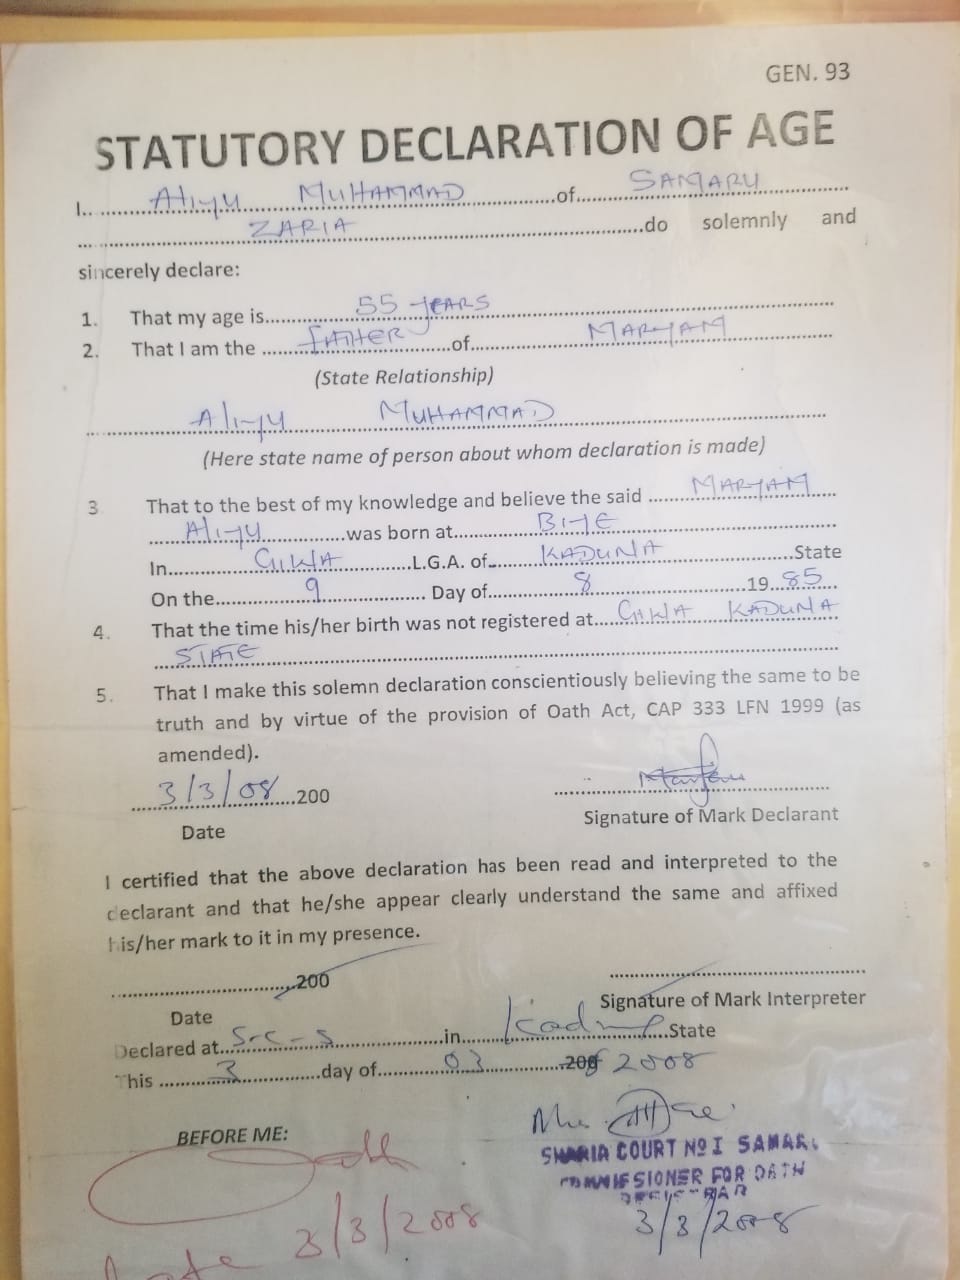 GEN. 93
STATUTORY DECLARATION OF AGE
I. Aliyu MUHAMMAD of SAMARU
ZARIA do solemnly and
sincerely declare:
1. That my age is 55 YEARS
2. That I am the FATHER of MARYAM
(State Relationship)
Aliyu MUHAMMAD
(Here state name of person about whom declaration is made)
3 That to the best of my knowledge and believe the said MARYAM
Aliyu was born at BIYE
In GIWA L.G.A. of KADUNA State
On the 9 Day of 8 19 85
4. That the time his/her birth was not registered at GIWA KADUNA
STATE
5. That I make this solemn declaration conscientiously believing the same to be
truth and by virtue of the provision of Oath Act, CAP 333 LFN 1999 (as
amended).
3/3/08 200
Date
Signature of Mark Declarant
I certified that the above declaration has been read and interpreted to the
declarant and that he/she appear clearly understand the same and affixed
his/her mark to it in my presence.
200
Date
Signature of Mark Interpreter
Declared at S-C-S in Kaduna State
This 3 day of 03 200 2008
BEFORE ME:
SHARIA COURT No I SAMARU
COMMISSIONER FOR OATH
REGISTRAR
3/3/2008
Date 3/3/2008